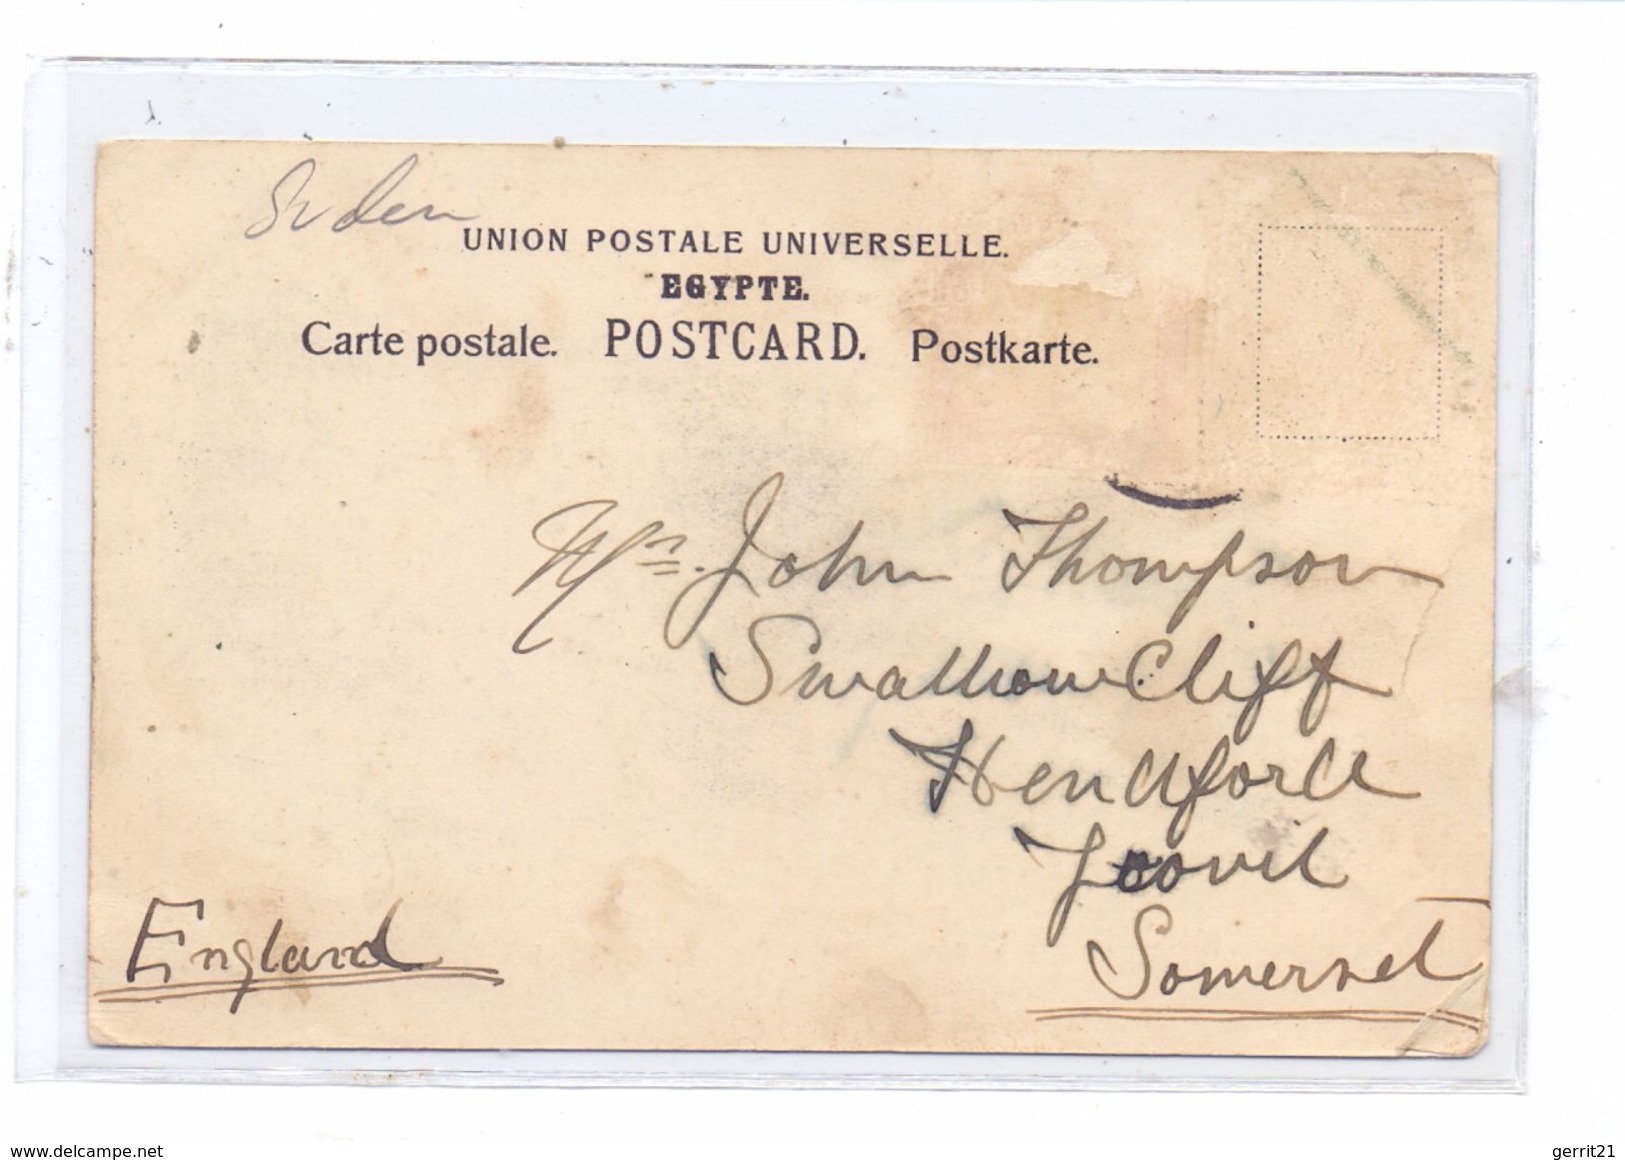 Suden
UNION POSTALE UNIVERSELLE.
EGYPTE.
Carte postale. POSTCARD. Postkarte.
Mr. John Thompson
Swallowcliff
Hendford
Yeovil
Somerset
England
www.delcampe.net
gerrit21